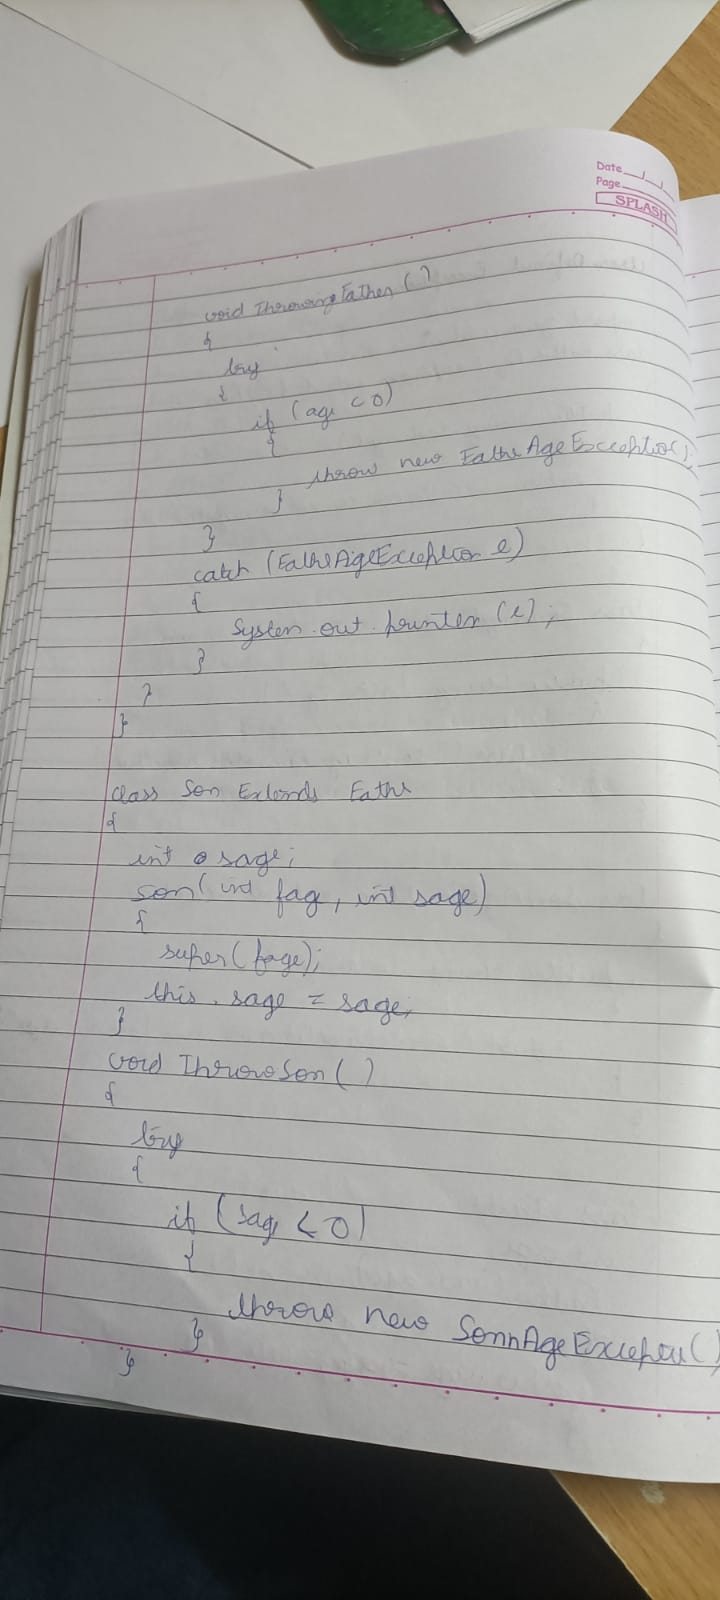 Date
Page
SPLASH
void ThrowingFather ( )
{
try
{
if (age < 0)
{
throw new FatheAgeException();
}
}
catch (FatheAgeException e)
{
System.out.println (e);
}
}
}
class Son Extends Fathe
{
int sage;
son( int fag, int sage)
{
super(fage);
this.sage = sage;
}
void ThrowSon ( )
{
try
{
if (sag < 0)
{
throw new SonnAgeExceptio( )
}
}